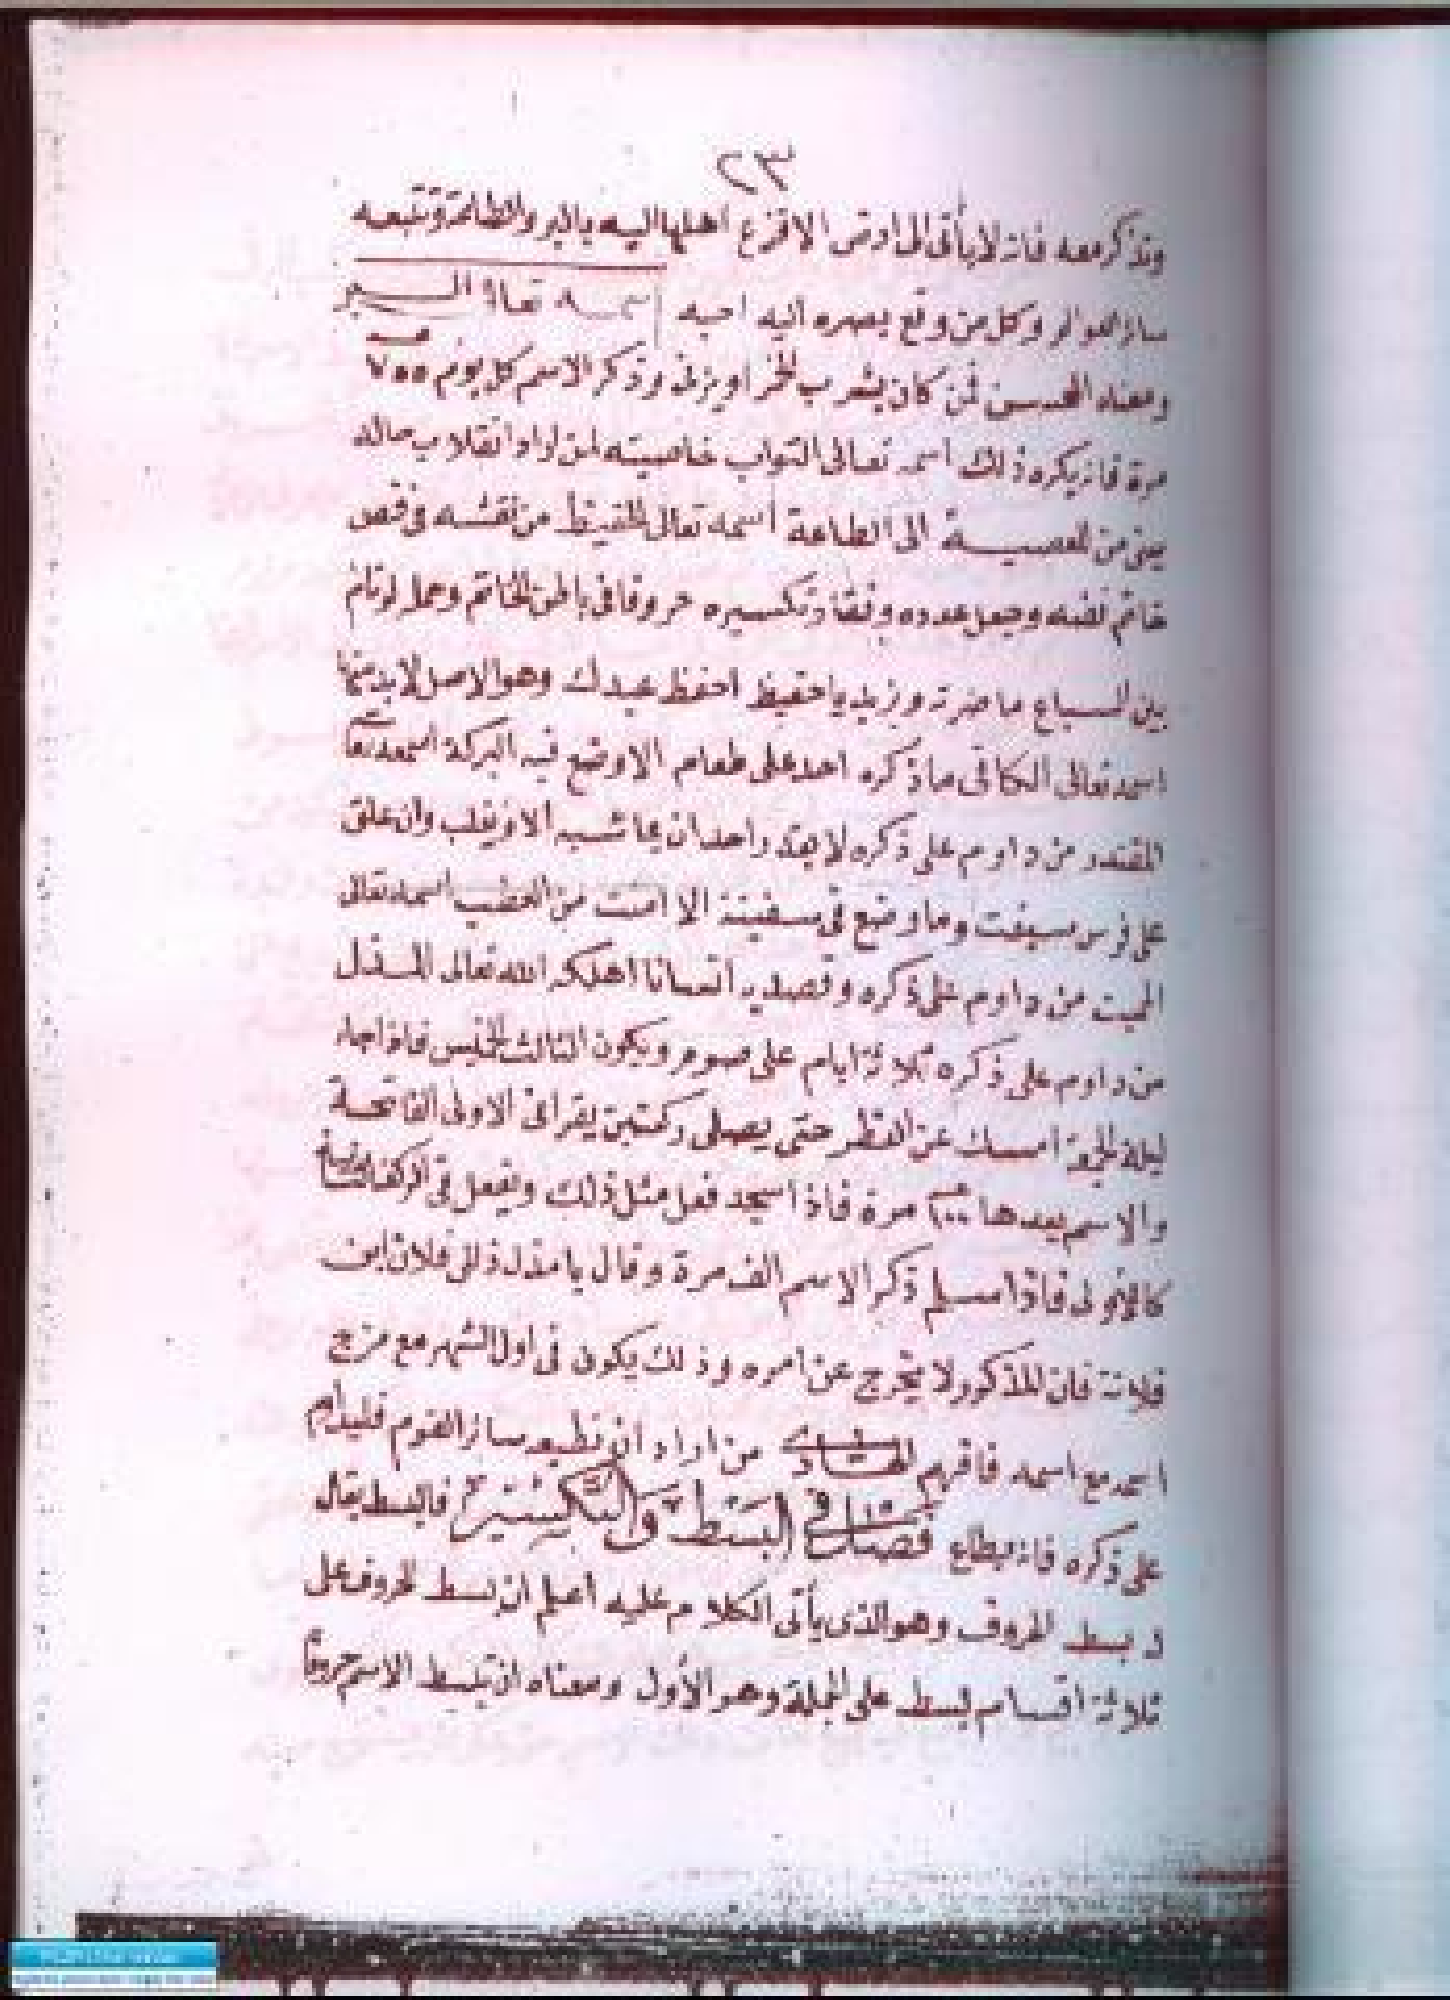 ٢٣
وتذكر معه فانه لا يأتى الى ارض الا فزع اهلها اليه بالبر والطاعة وتتبعه
سائر العوالم وكل من وقع بصره اليه احبه اسمه تعالى
ومعناه المحسن فمن كان يشرب الخمر او يزنى وذكر الاسم كل يوم ٧٥٥
مرة فانه يكره ذلك اسمه تعالى التواب خاصيته لمن اراد انقلاب حاله
يعنى من المعصيــة الى الطاعة اسمه تعالى الحفيظ من نقشه فى فص
خاتم فضه وجعل عدده وفقا وتكسيره حروفا فى باطن الخاتم وحمله لو نام
بين السباع ما ضرته ويزيد يا حفيظ احفظ عبدك وهو الاصل لابد منها
اسمه تعالى الكافى ما ذكره احد على طعام الا وضع فيه البركة اسمه تعا
المقتدر من داوم على ذكره لا يقدر احد ان الا ويغلب وان علق
على فرس سبقت وما وضع فى سفينة الا امنت من العطب اسمه تعالى
المميت من داوم على ذكره وقصد به انسانا اهلكه الله تعالى المــذل
من داوم على ذكره ثلاثة ايام على صوم ويكون الثالث الخميس فاذا جاء
ليلة الجمعة امسك عن الفطر حتى يصلى ركعتين يقرأ فى الاولى الفاتحة
والاسم بعدها مرة فاذا سجد فعل مثل ذلك ويفعل فى الركعة الثانية
كالاولى فاذا سلم ذكر الاسم الف مرة وقال يا مذل ذلل فلان ابن
فلانة فان المذكور لا يخرج عن امره وذلك يكون فى اول الشهر مع مزج
اسمه مع اسمه فافهم من اراد ان تطيعه سائر القوم فليداوم
على ذكره فانه يطاع فصل فى البسط والتكسير فالبسط يقال
بسط الحروف وهو الذى يأتى الكلام عليه اعلم ان بسط الحروف على
ثلاثة اقسام بسط على الجملة وهو الأول ومعناه ان تبسط الاسم حروفا